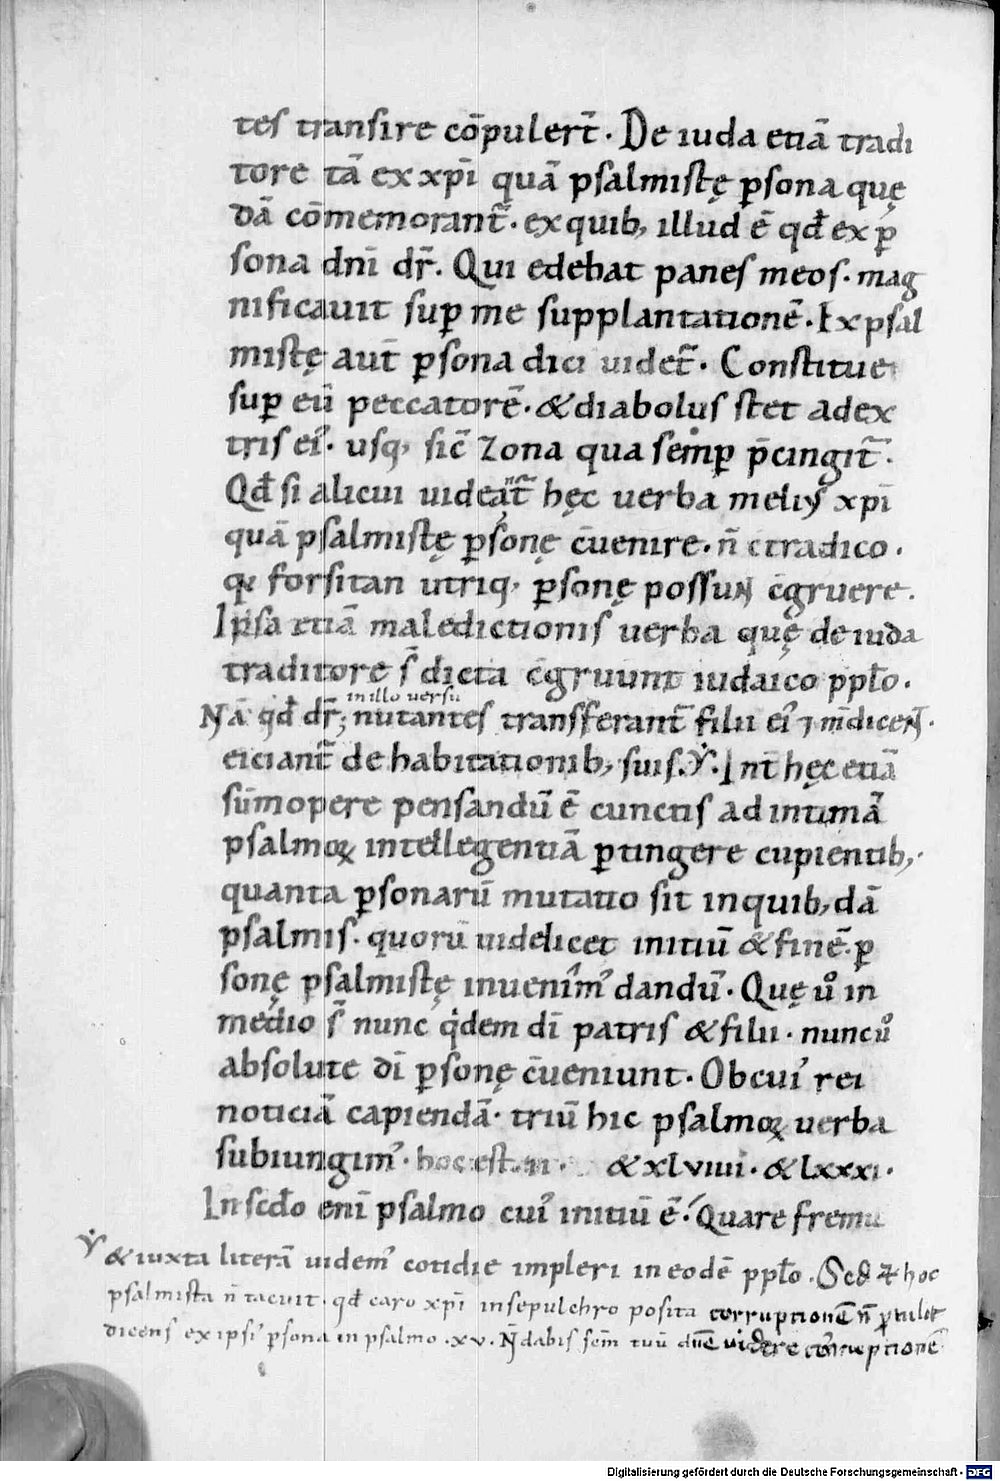 tes transire cōpulert̄. De iuda etiā tradi
tore tā ex xp̄i quā psalmistę ꝑsona quę
dā cōmemorant̄. ex quib; illud ē qđ ex ꝑ
sona dn̄i dr̄. Qui edebat panes meos. mag
nificauit suꝑ me supplantationē. Ex psal
mistę aut̄ ꝑsona dici uidet̄. Constitue
suꝑ eū peccatorē. & diabolus stet adex
tris ei᾽. usq; sic̄ zona qua semꝑ p̄cingit̄.
Qđ si alicui uideat̄ hęc uerba meli᾽ xp̄i
quā psalmistę ꝑsonę c̄uenire. n̄ c̄tradico.
qꝛ forsitan utriq; ꝑsonę possuɴ c̄gruere.
Ipsa etiā maledictionis uerba quę de iuda
traditore s̄ dicta c̄gruunt iudaico ppło.
in illo uersu
Nā qđ dr̄; nutantes transferant̄ filii ei᾽ ⁊ m̄dicenꞇ̄.
eiciant̄ de habitationib; suis. Int̄ hęc etiā
sūmopere pensandū ē cunctis ad intimā
psalmoꝝ intellegentiā ꝑtingere cupientib;.
quanta ꝑsonarū mutatio sit in quib;dā
psalmis. quorū uidelicet initiū & finē. ꝑ
sonę psalmistę inuenim᾽ dandū. Quę uͦ in
medio s̄ nunc qͥdem dī patris & filii. nunc uͦ
absolute dī ꝑsonę c̄ueniunt. Ob cui᾽ rei
noticiā capiendā. triū hic psalmoꝝ uerba
subiungim᾽. hoc est. II. & xlviiii. & lxxxi.
In scđo enī psalmo cui᾽ initiū ē. Quare fremu
& iuxta literā uidem᾽ cotidie impleri in eodē ppło. Sed & hoc
psalmista n̄ tacuit. qđ caro xp̄i in sepulchro posita corruptionē n̄ ꝑtulit
dicens ex ipsi᾽ ꝑsona in psalmo. xv. N̄ dabis sc̄m tuū dn̄e uidere corruptionē
Digitalisierung gefördert durch die Deutsche Forschungsgemeinschaft - DFG